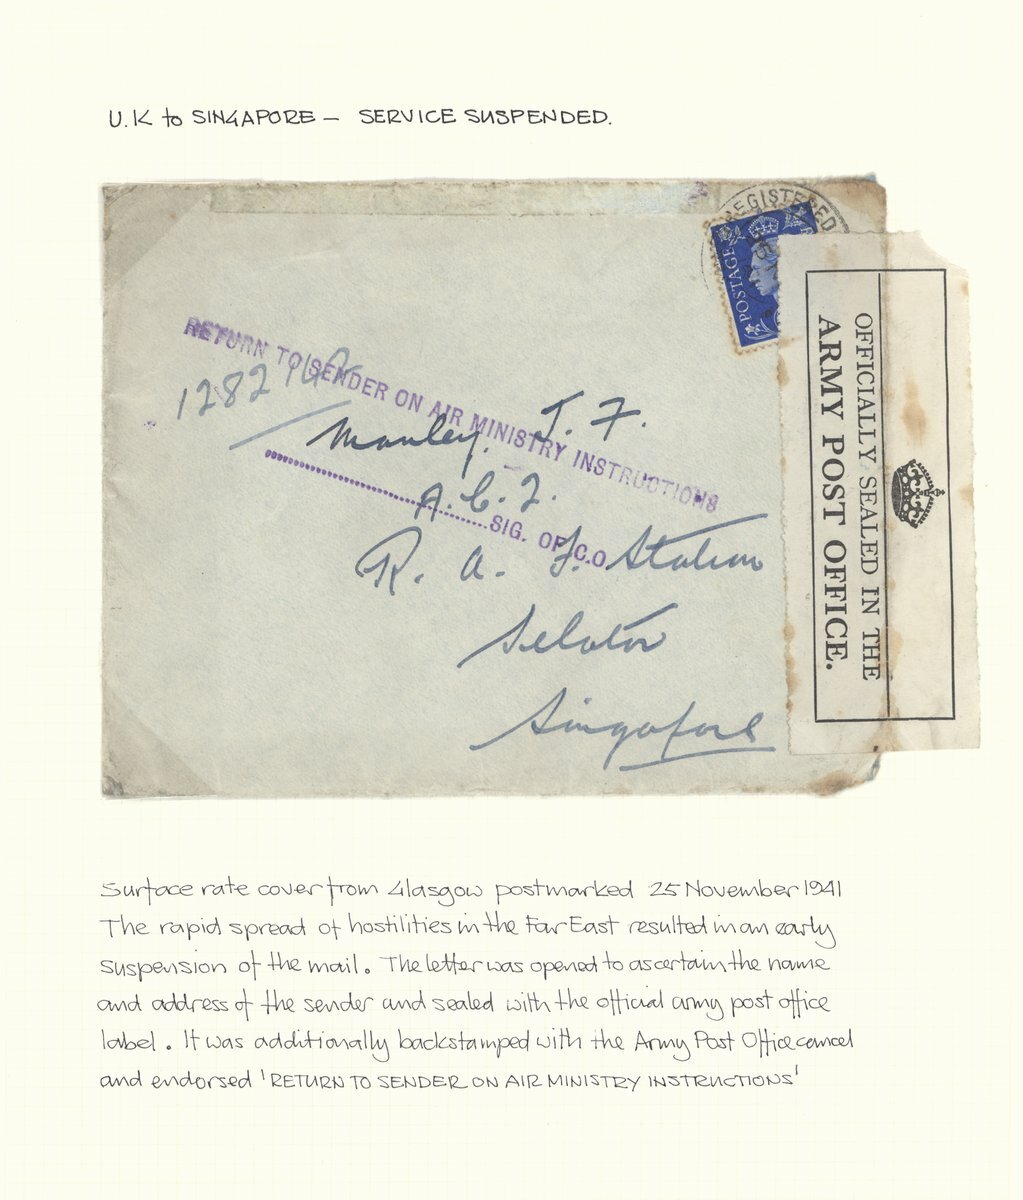 U.K to SINGAPORE — SERVICE SUSPENDED.
REGISTERED
POSTAGE
OFFICIALLY SEALED IN THE
ARMY POST OFFICE.
RETURN TO SENDER ON AIR MINISTRY INSTRUCTIONS
1282
Manley. J. F.
A.C.2.
SIG. OF C.O.
R. A. F. Station
Seletar
Singapore
Surface rate cover from Glasgow postmarked 25 November 1941
The rapid spread of hostilities in the Far East resulted in an early
suspension of the mail. The letter was opened to ascertain the name
and address of the sender and sealed with the official army post office
label. It was additionally backstamped with the Army Post Office cancel
and endorsed 'RETURN TO SENDER ON AIR MINISTRY INSTRUCTIONS'